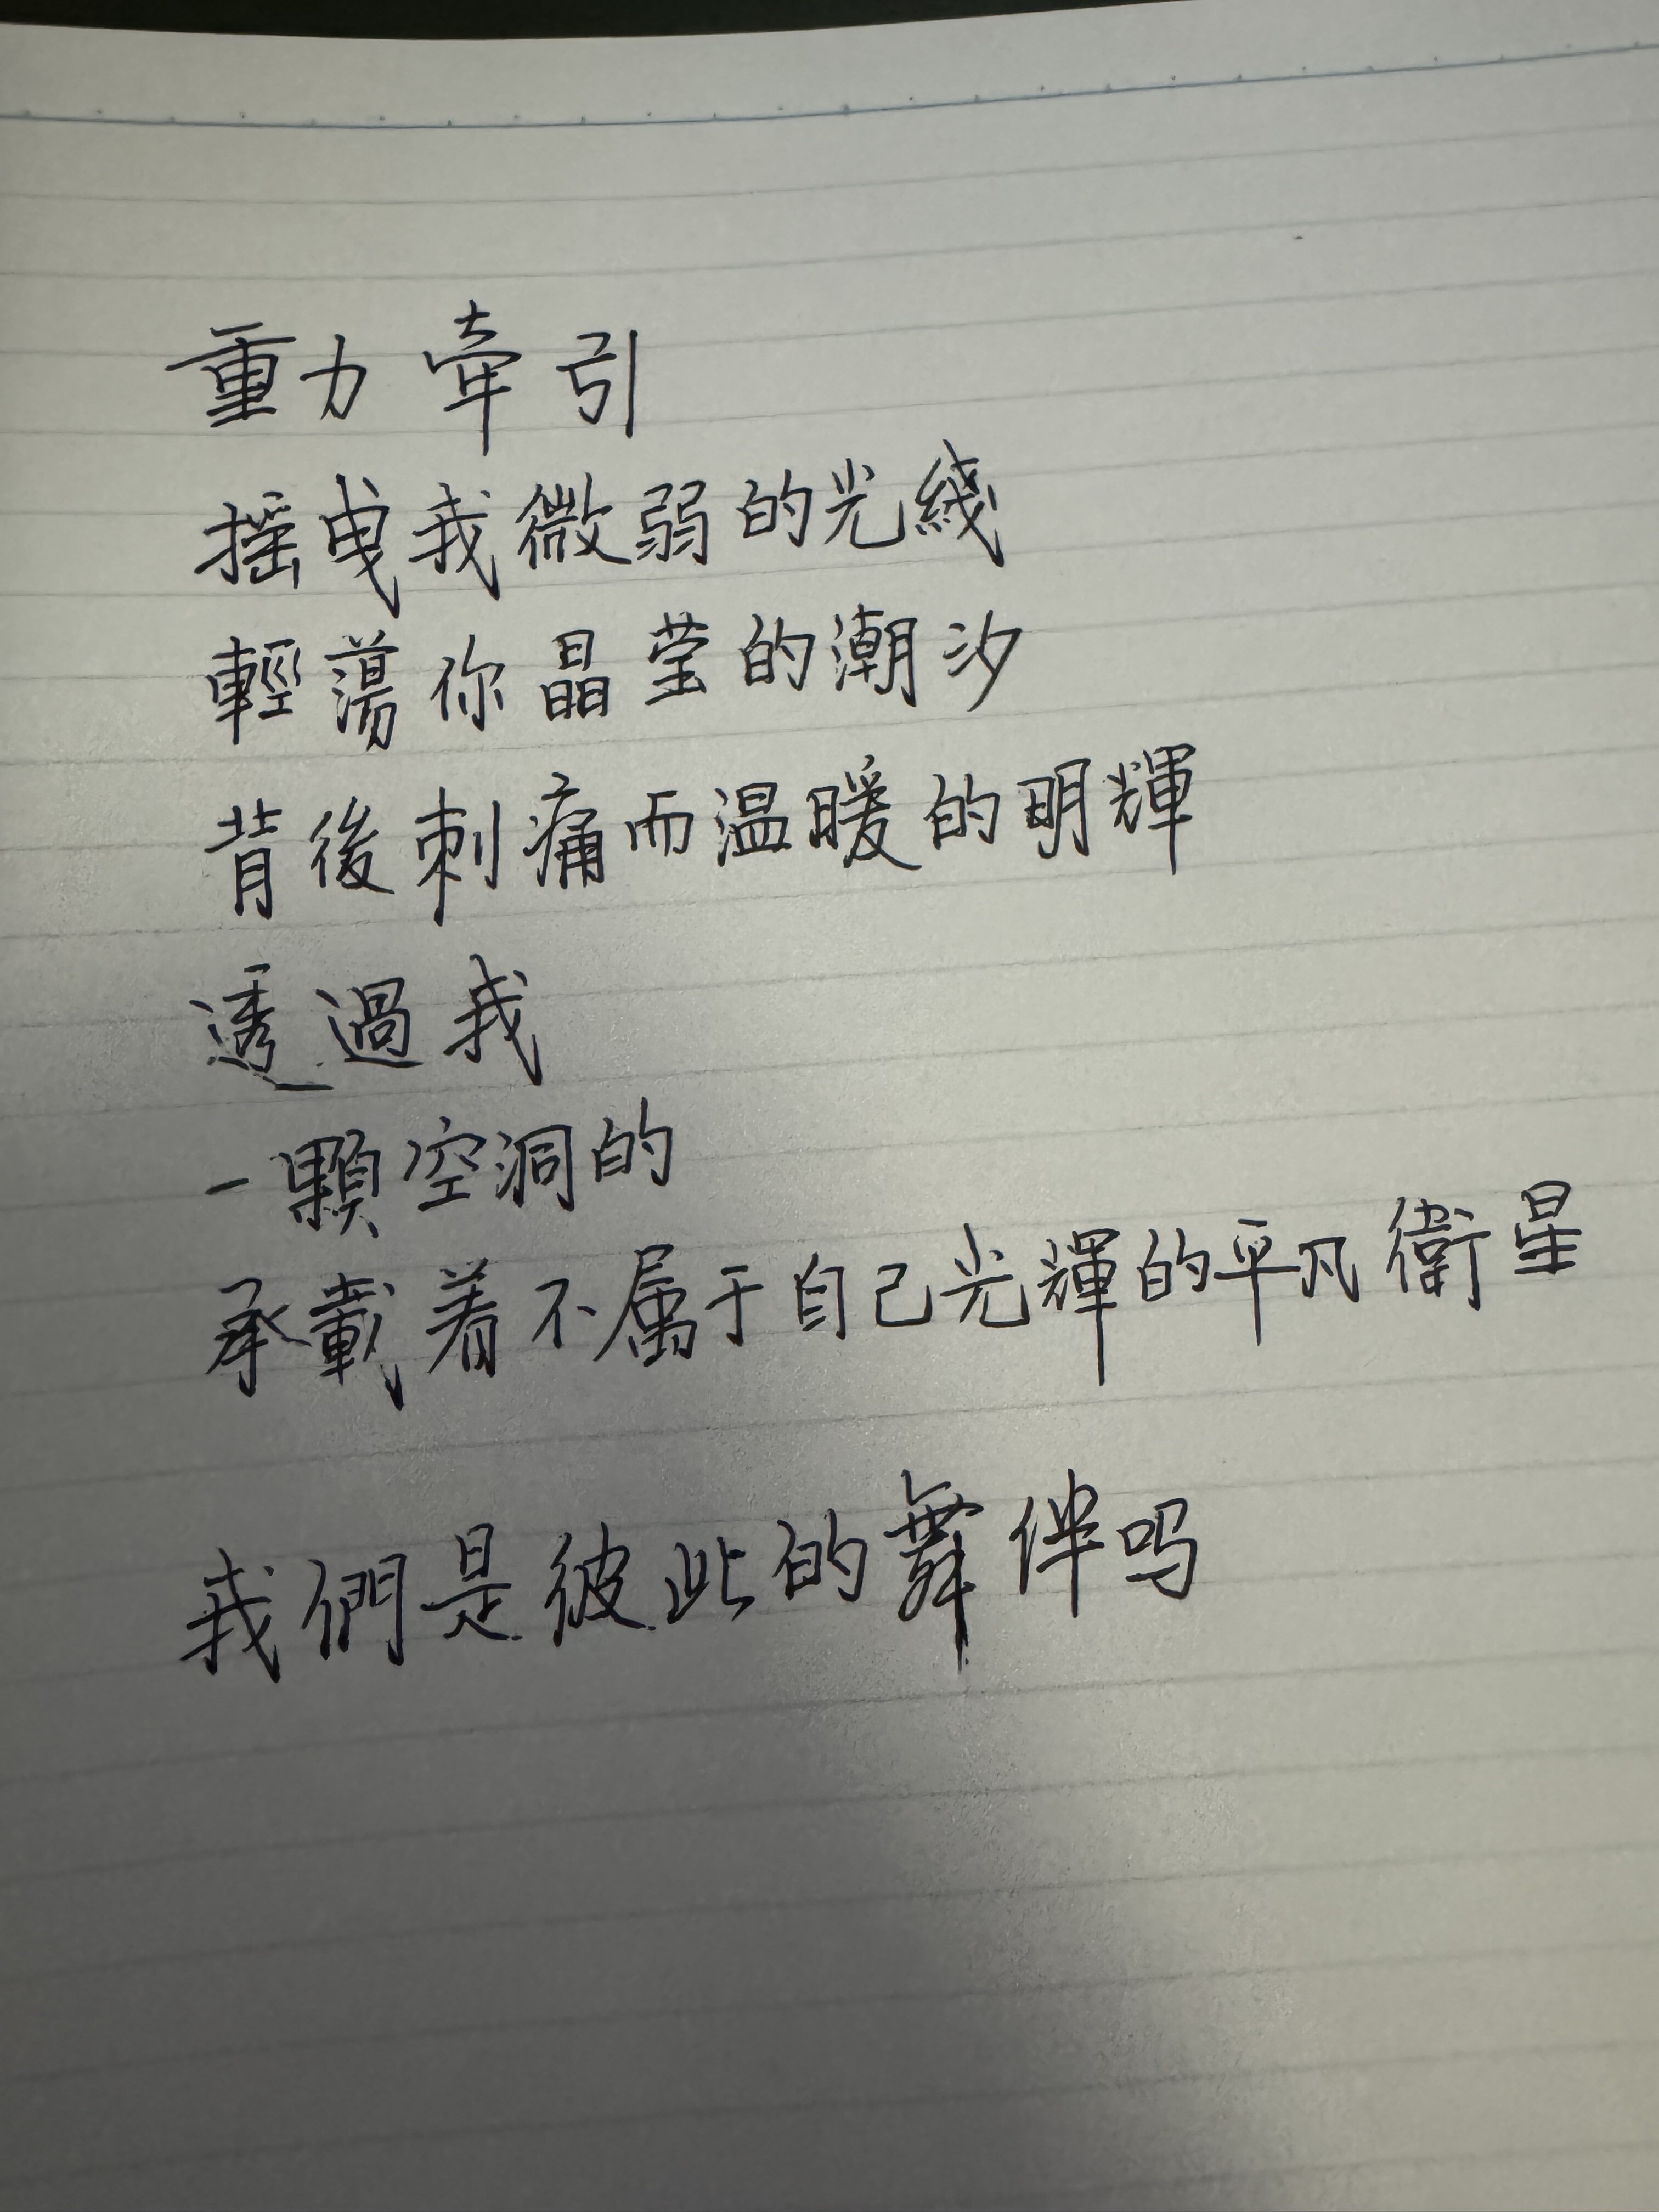 重力牽引
搖曳我微弱的光綫
輕蕩你晶莹的潮汐
背後刺痛而温暖的明輝
透過我
一顆空洞的
承載着不属于自己光輝的平凡衛星
我們是彼此的舞伴吗